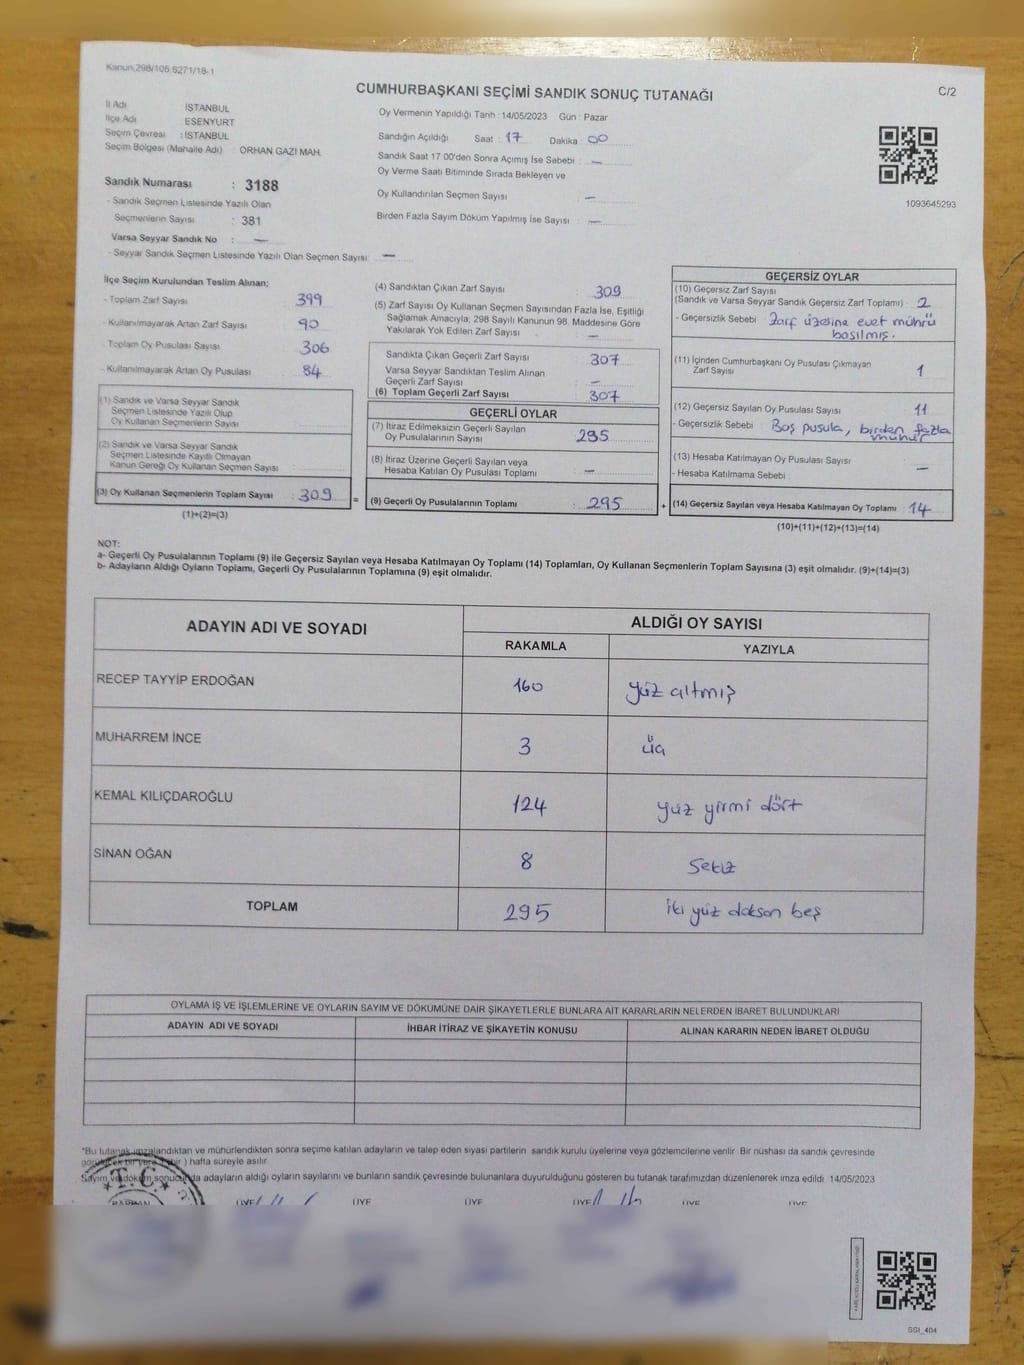 Kanun:298/105,6271/18-1
CUMHURBAŞKANI SEÇİMİ SANDIK SONUÇ TUTANAĞI
C/2
İl Adı İSTANBUL
İlçe Adı ESENYURT
Seçim Çevresi : İSTANBUL
Seçim Bölgesi (Mahalle Adı) : ORHAN GAZİ MAH.
Sandık Numarası : 3188
- Sandık Seçmen Listesinde Yazılı Olan
Seçmenlerin Sayısı : 381
Varsa Seyyar Sandık No : —
- Seyyar Sandık Seçmen Listesinde Yazılı Olan Seçmen Sayısı: —
Oy Vermenin Yapıldığı Tarih : 14/05/2023 Gün : Pazar
Sandığın Açıldığı Saat : 17 Dakika : 00
Sandık Saat 17:00'den Sonra Açımış İse Sebebi : —
Oy Verme Saati Bitiminde Sırada Bekleyen ve
Oy Kullandırılan Seçmen Sayısı : —
Birden Fazla Sayım Döküm Yapılmış İse Sayısı : —
1093645293
İlçe Seçim Kurulundan Teslim Alınan;
- Toplam Zarf Sayısı : 399
- Kullanılmayarak Artan Zarf Sayısı : 90
- Toplam Oy Pusulası Sayısı : 306
- Kullanılmayarak Artan Oy Pusulası : 84
(1) Sandık ve Varsa Seyyar Sandık
Seçmen Listesinde Yazılı Olup
Oy Kullanan Seçmenlerin Sayısı :
(2) Sandık ve Varsa Seyyar Sandık
Seçmen Listesinde Kayıtlı Olmayan
Kanun Gereği Oy Kullanan Seçmen Sayısı :
(3) Oy Kullanan Seçmenlerin Toplam Sayısı : 309
(1)+(2)=(3)
(4) Sandıktan Çıkan Zarf Sayısı : 309
(5) Zarf Sayısı Oy Kullanan Seçmen Sayısından Fazla İse, Eşitliği
Sağlamak Amacıyla, 298 Sayılı Kanunun 98. Maddesine Göre
Yakılarak Yok Edilen Zarf Sayısı : —
Sandıkta Çıkan Geçerli Zarf Sayısı : 307
Varsa Seyyar Sandıktan Teslim Alınan
Geçerli Zarf Sayısı : —
(6) Toplam Geçerli Zarf Sayısı : 307
GEÇERLİ OYLAR
(7) İtiraz Edilmeksizin Geçerli Sayılan
Oy Pusulalarının Sayısı : 295
(8) İtiraz Üzerine Geçerli Sayılan veya
Hesaba Katılan Oy Pusulası Toplamı : —
= (9) Geçerli Oy Pusulalarının Toplamı : 295
GEÇERSİZ OYLAR
(10) Geçersiz Zarf Sayısı
(Sandık ve Varsa Seyyar Sandık Geçersiz Zarf Toplamı) : 2
- Geçersizlik Sebebi : Zarf üzerine evet mührü
basılmış.
(11) İçinden Cumhurbaşkanı Oy Pusulası Çıkmayan
Zarf Sayısı : 1
(12) Geçersiz Sayılan Oy Pusulası Sayısı : 11
- Geçersizlik Sebebi : Boş pusula, birden fazla
mühür
(13) Hesaba Katılmayan Oy Pusulası Sayısı : —
- Hesaba Katılmama Sebebi :
+ (14) Geçersiz Sayılan veya Hesaba Katılmayan Oy Toplamı : 14
(10)+(11)+(12)+(13)=(14)
NOT:
a- Geçerli Oy Pusulalarının Toplamı (9) ile Geçersiz Sayılan veya Hesaba Katılmayan Oy Toplamı (14) Toplamları, Oy Kullanan Seçmenlerin Toplam Sayısına (3) eşit olmalıdır. (9)+(14)=(3)
b- Adayların Aldığı Oyların Toplamı, Geçerli Oy Pusulalarının Toplamına (9) eşit olmalıdır.
ADAYIN ADI VE SOYADI ALDIĞI OY SAYISI
RAKAMLA YAZIYLA
RECEP TAYYİP ERDOĞAN 160 yüz altmış
MUHARREM İNCE 3 üç
KEMAL KILIÇDAROĞLU 124 yüz yirmi dört
SİNAN OĞAN 8 Sekiz
TOPLAM 295 iki yüz doksan beş
OYLAMA İŞ VE İŞLEMLERİNE VE OYLARIN SAYIM VE DÖKÜMÜNE DAİR ŞİKAYETLERLE BUNLARA AİT KARARLARIN NELERDEN İBARET BULUNDUKLARI
ADAYIN ADI VE SOYADI İHBAR İTİRAZ VE ŞİKAYETİN KONUSU ALINAN KARARIN NEDEN İBARET OLDUĞU
*Bu tutanak imzalandıktan ve mühürlendikten sonra seçime katılan adayların ve talep eden siyasi partilerin sandık kurulu üyelerine veya gözlemcilerine verilir. Bir nüshası da sandık çevresinde
görülecek bir yere ) hafta süreyle asılır.
Sayım ve döküm sonucunda adayların aldığı oyların sayılarını ve bunların sandık çevresinde bulunanlara duyurulduğunu gösteren bu tutanak tarafımızdan düzenlenerek imza edildi. 14/05/2023
T.C.
BAŞKAN ÜYE ÜYE ÜYE ÜYE ÜYE ÜYE
SSI_404